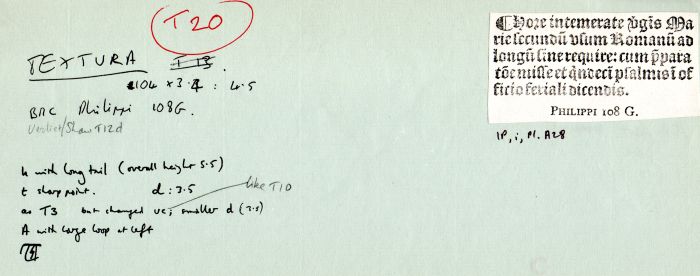 T20
TEXTURA T 13.
104 × 3.4 : 4.5
BMC Philippi 108G.
Vervliet/Shaw T12d
h with long tail (overall height 5.5)
t sharp point. d : 3.5
like T10
as T3 but changed uc; smaller d (3.5)
A with large loop at left
Hore intemerate v̄gīs Ma
rie secundū vsum Romanū ad
longū sine require: cum p̄para
tōe misse et q̄ndeci psalmis⁊ of
ficio feriali dicendis.
PHILIPPI 108 G.
IP, i, Pl. A28